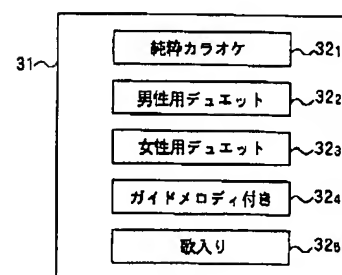 31
純粋カラオケ 32₁
男性用デュエット 32₂
女性用デュエット 32₃
ガイドメロディ付き 32₄
歌入り 32₅